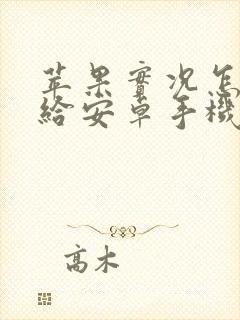 苹果實况怎
給安卓手機
高木